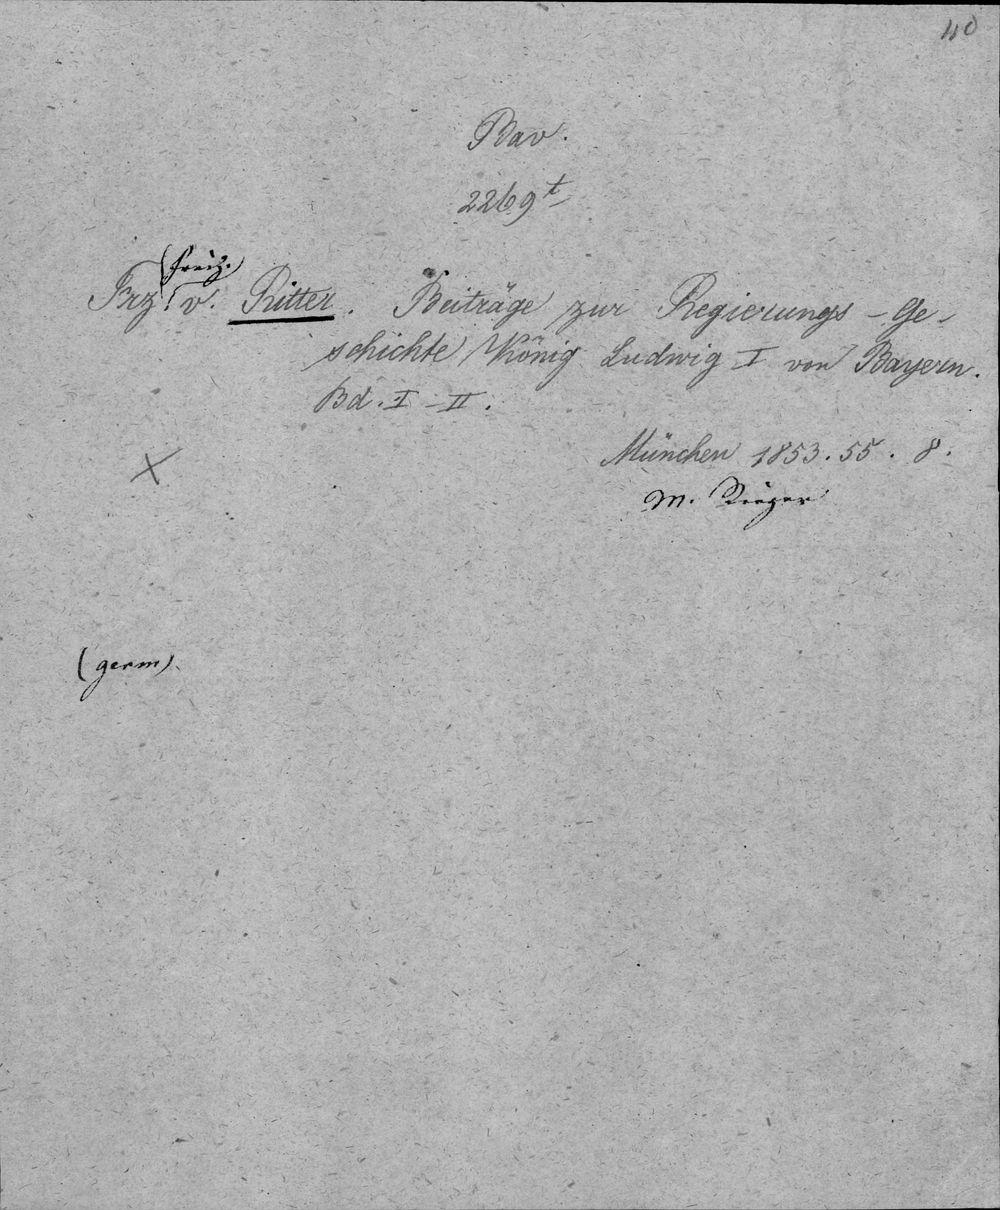 40
Bav.
2269 t
(Freih.)
Frz. v. Ritter. Beiträge zur Regierungs-Ge-
schichte König Ludwig I von Bayern.
Bd. I-II.
München 1853.55. 8.
M. Rieger
(germ).